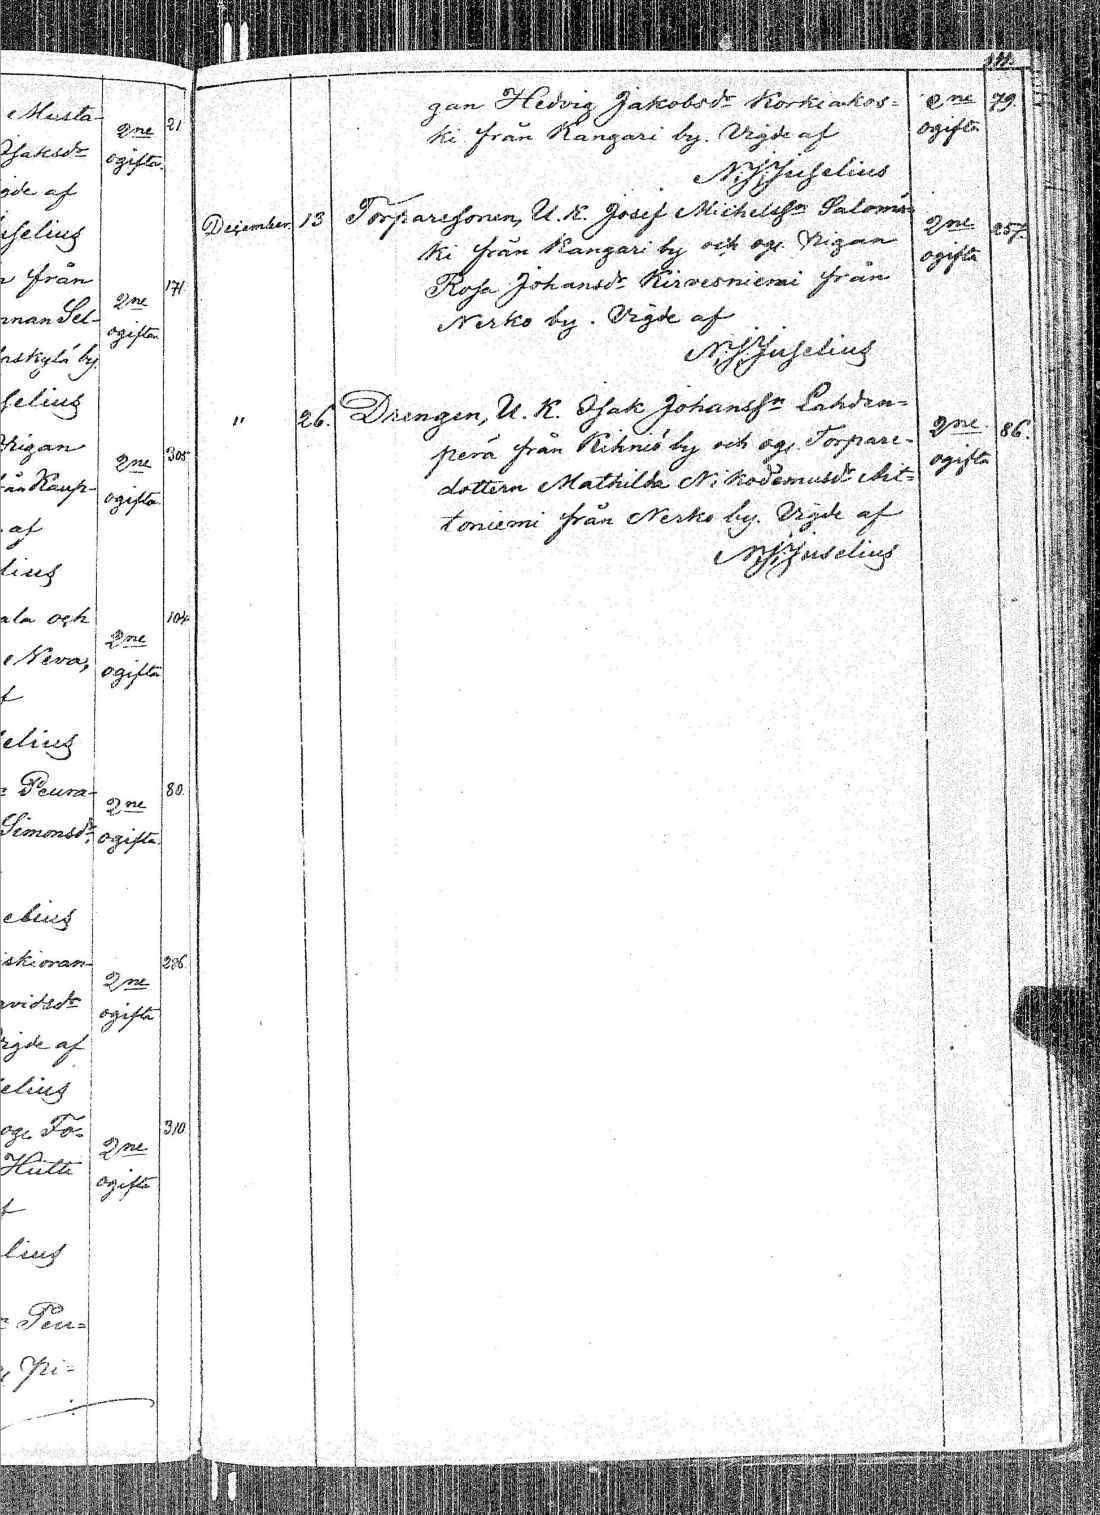 Musta-
Isaksdr
2ne
ogifta.
21
gde af
selius
från
2ne
ogifta
171
nnan Sel-
skylä by
selius
Pigan
från Kaup-
2ne
ogifta
305
af
lius
ala och
Neva,
2ne
ogifta
104
f
elius
Peura-
Simonsdr
2ne
ogifta
80.
elius
iskioran-
vidsdr
2ne
ogifta
286.
Vigde af
elius
og. To-
Hütti
2ne
ogifta
310
f
lius
Peu-
Pi-
gan Hedvig Jakobsdr Korkiakos-
ki från Kangari by. Vigde af
N. J. Juselius
2ne
ogifta
79.
December. 13 Torparesonen, U. K. Josef Michelssn Salomäs-
ki från Kangari by och og. Pigan
Rosa Johansdr Kirvesniemi från
Nerko by. Vigde af
N. J. Juselius
2ne
ogifta
257.
" 26. Drengen, U. K. Isak Johanssn Lahden-
perä från Kihniö by och og. Torpare-
dottern Mathilda Nikodemusdr Ant-
toniemi från Nerko by. Vigde af
N. J. Juselius
2ne
ogifta
86.